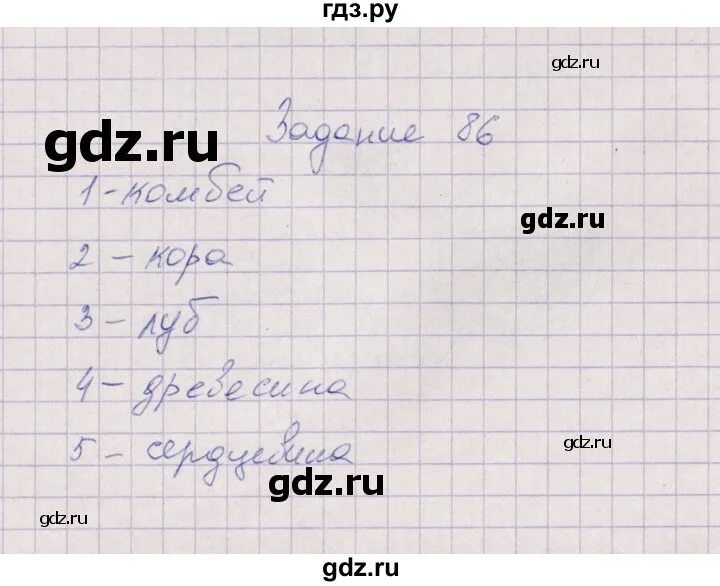 гдз.ру
gdz.ru
gdz.ru
Задание 86
1 - комбей
gdz.ru
2 - кора
3 - луб
4 - древесина
5 - сердцевина
gdz.ru
gdz.ru
gdz.ru
gdz.ru